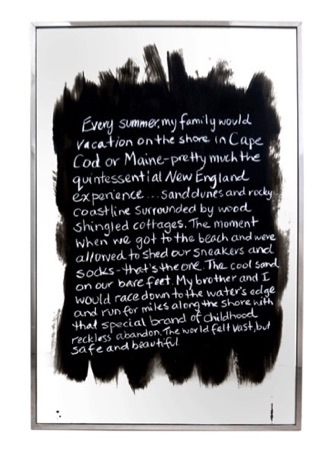 Every summer, my family would
vacation on the shore in Cape
Cod or Maine-pretty much the
quintessential New England
experience... sand dunes and rocky
coastline surrounded by wood
shingled cottages. The moment
when we got to the beach and were
allowed to shed our sneakers and
socks-that's the one. The cool sand
on our bare feet. My brother and I
would race down to the water's edge
and run for miles along the shore with
that special brand of childhood
reckless abandon. The world felt vast, but
safe and beautiful